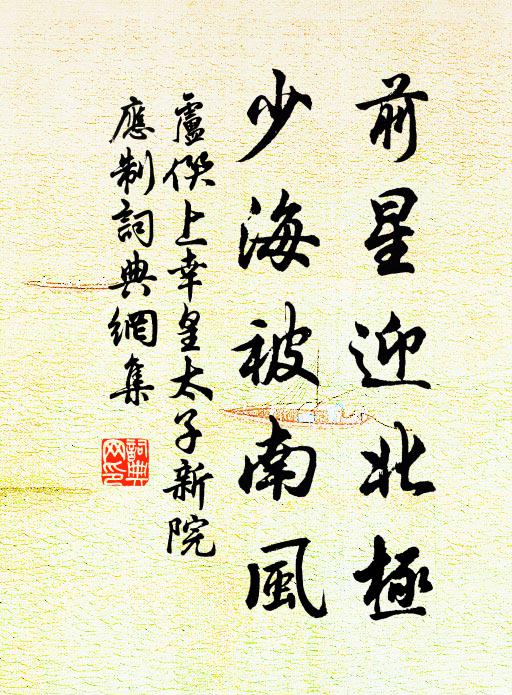 前星迎北極
少海被南風
盧僎上幸皇太子新院
應制詞典網集
詞典
网印